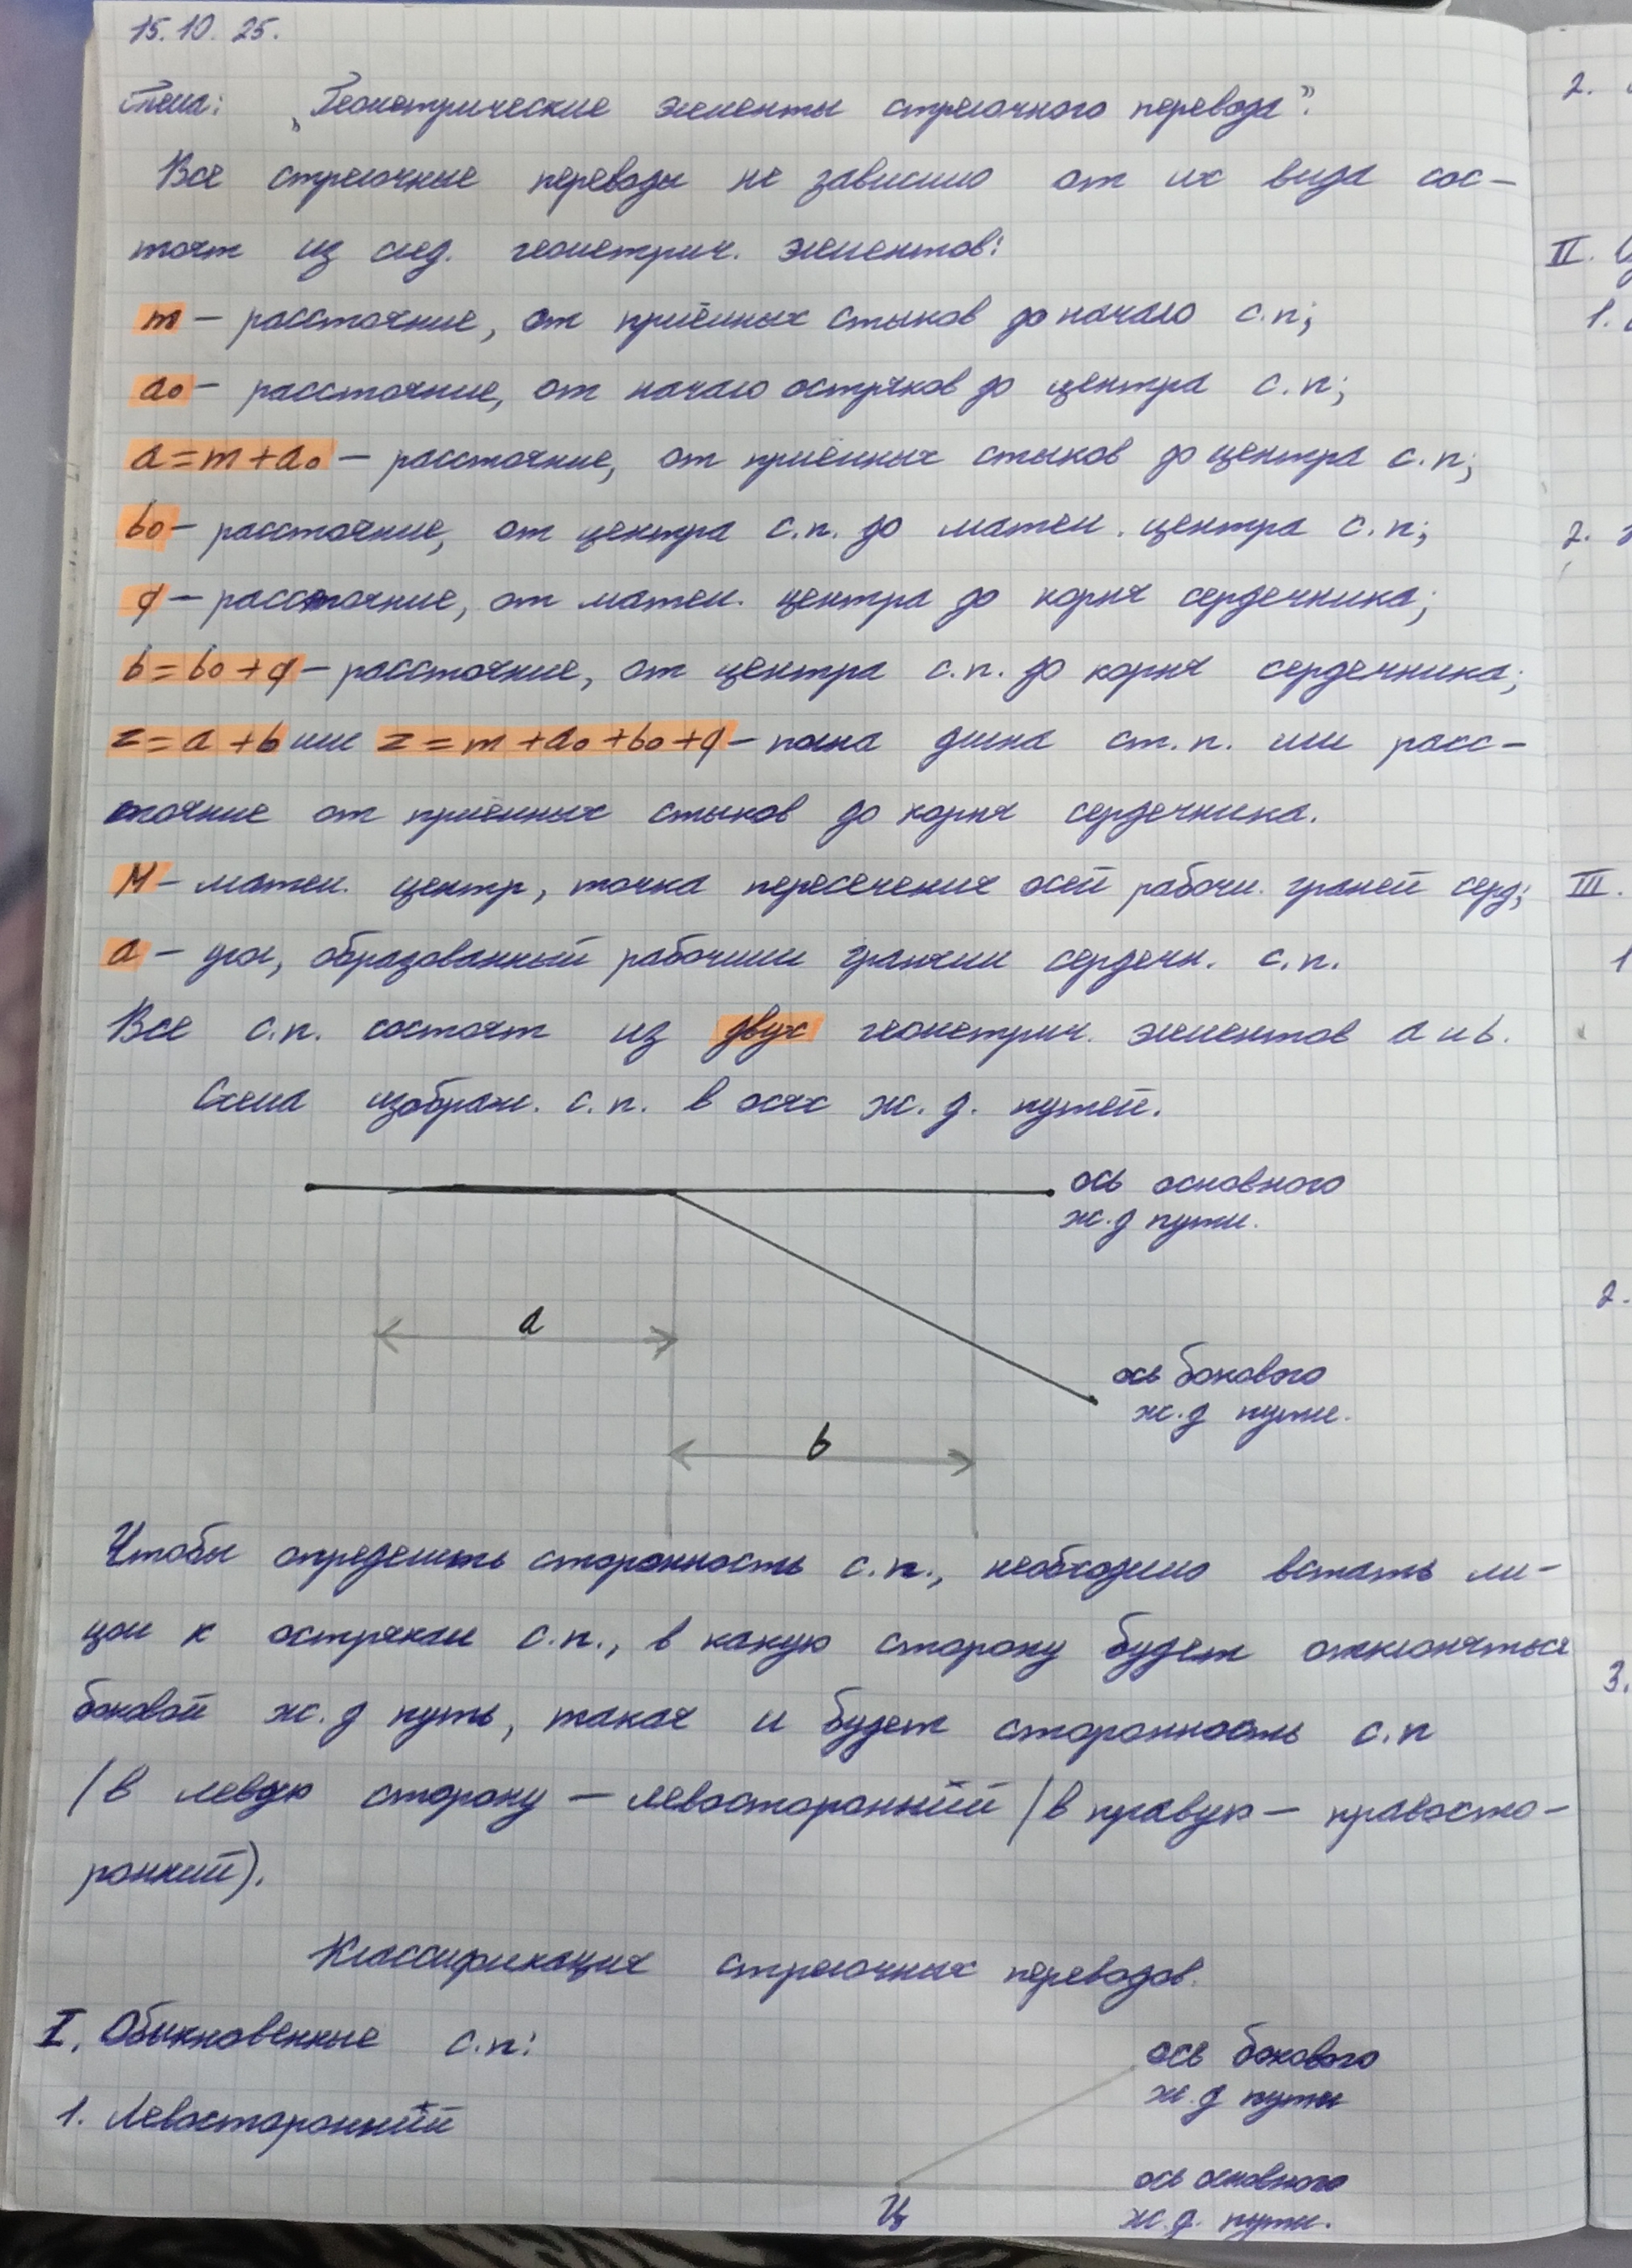 15.10.25.
Тема: „Геометрические элементы стрелочного перевода".
Все стрелочные переводы не зависимо от их вида сос-
тоят из след. геометрич. элементов:
m – расстояние, от приёмных стыков до начало с.п;
a₀ – расстояние, от начало остряков до центра с.п;
a=m+a₀ – расстояние, от приёмных стыков до центра с.п;
b₀ – расстояние, от центра с.п. до матем. центра с.п;
q – расстояние, от матем. центра до корня сердечника;
b=b₀+q – расстояние, от центра с.п. до корня сердечника;
z=a+b или z=m+a₀+b₀+q – полна длина ст.п. или расс-
тояние от приёмных стыков до корня сердечника.
M – матем. центр, точка пересечения осей рабочи. граней серд;
a – угол, образованный рабочими гранями сердечн. с.п.
Все с.п. состоят из двух геометрич. элементов a и b.
Схема изображ. с.п. в осях ж.д. путей.
ось основного
ж.д пути.
a
ось бокового
ж.д пути.
b
Чтобы определить сторонность с.п., необходимо встать ли-
цом к острякам с.п., в какую сторону будет отклоняться
боковой ж.д путь, такая и будет сторонность с.п
(в левую сторону – левосторонний / в правую – правосто-
ронний).
Классификация стрелочных переводов.
I. Обыкновенные с.п:
ось бокового
ж.д пути
1. Левосторонний
ось основного
ж.д. пути.
Ц
2.
II.
1.
2.
III.
1
2.
3.